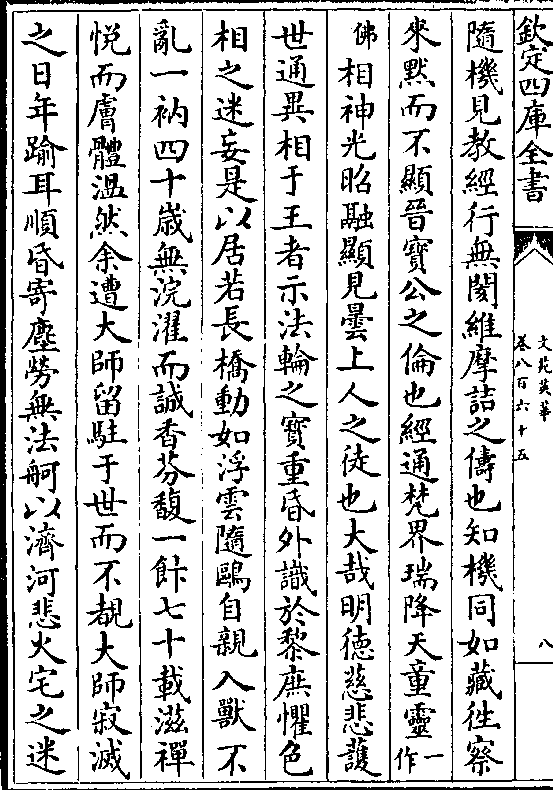 欽定四庫全書
文苑英華
卷八百六十五
八
隨機見教經行無閡維摩詰之儔也知機同如藏徃察
來默而不顯晉寶公之倫也經通梵界瑞降天童靈一作
佛相神光昭融顯見曇上人之徒也大哉明德慈悲䕶
世通異相于王者示法輪之寳重昏外識於黎庶懼色
相之迷妄是以居若長橋動如浮雲隨鷗自親入獸不
亂一衲四十歳無浣濯而誠香芬馥一飰七十載滋禪
悦而膚體溫然余遭大師留駐于世而不覩大師寂滅
之日年踰耳順昏寄塵勞無法舸以濟河悲火宅之迷